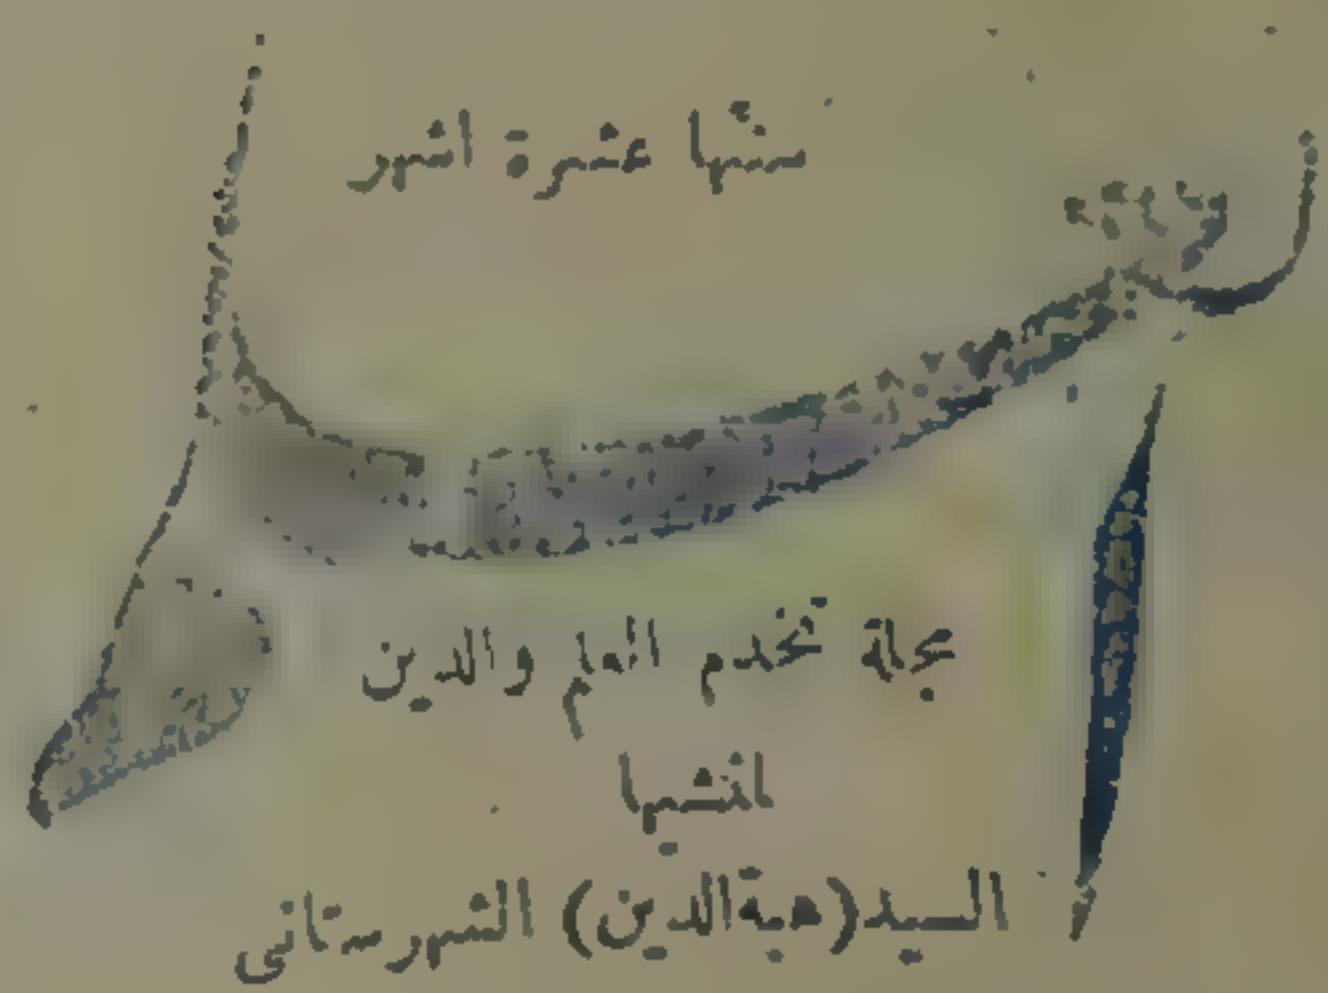 سنتها عشرة اشهر
مجلة تخدم العلم والدين
لمنشيها
السيد(هبةالدين) الشهرستانى